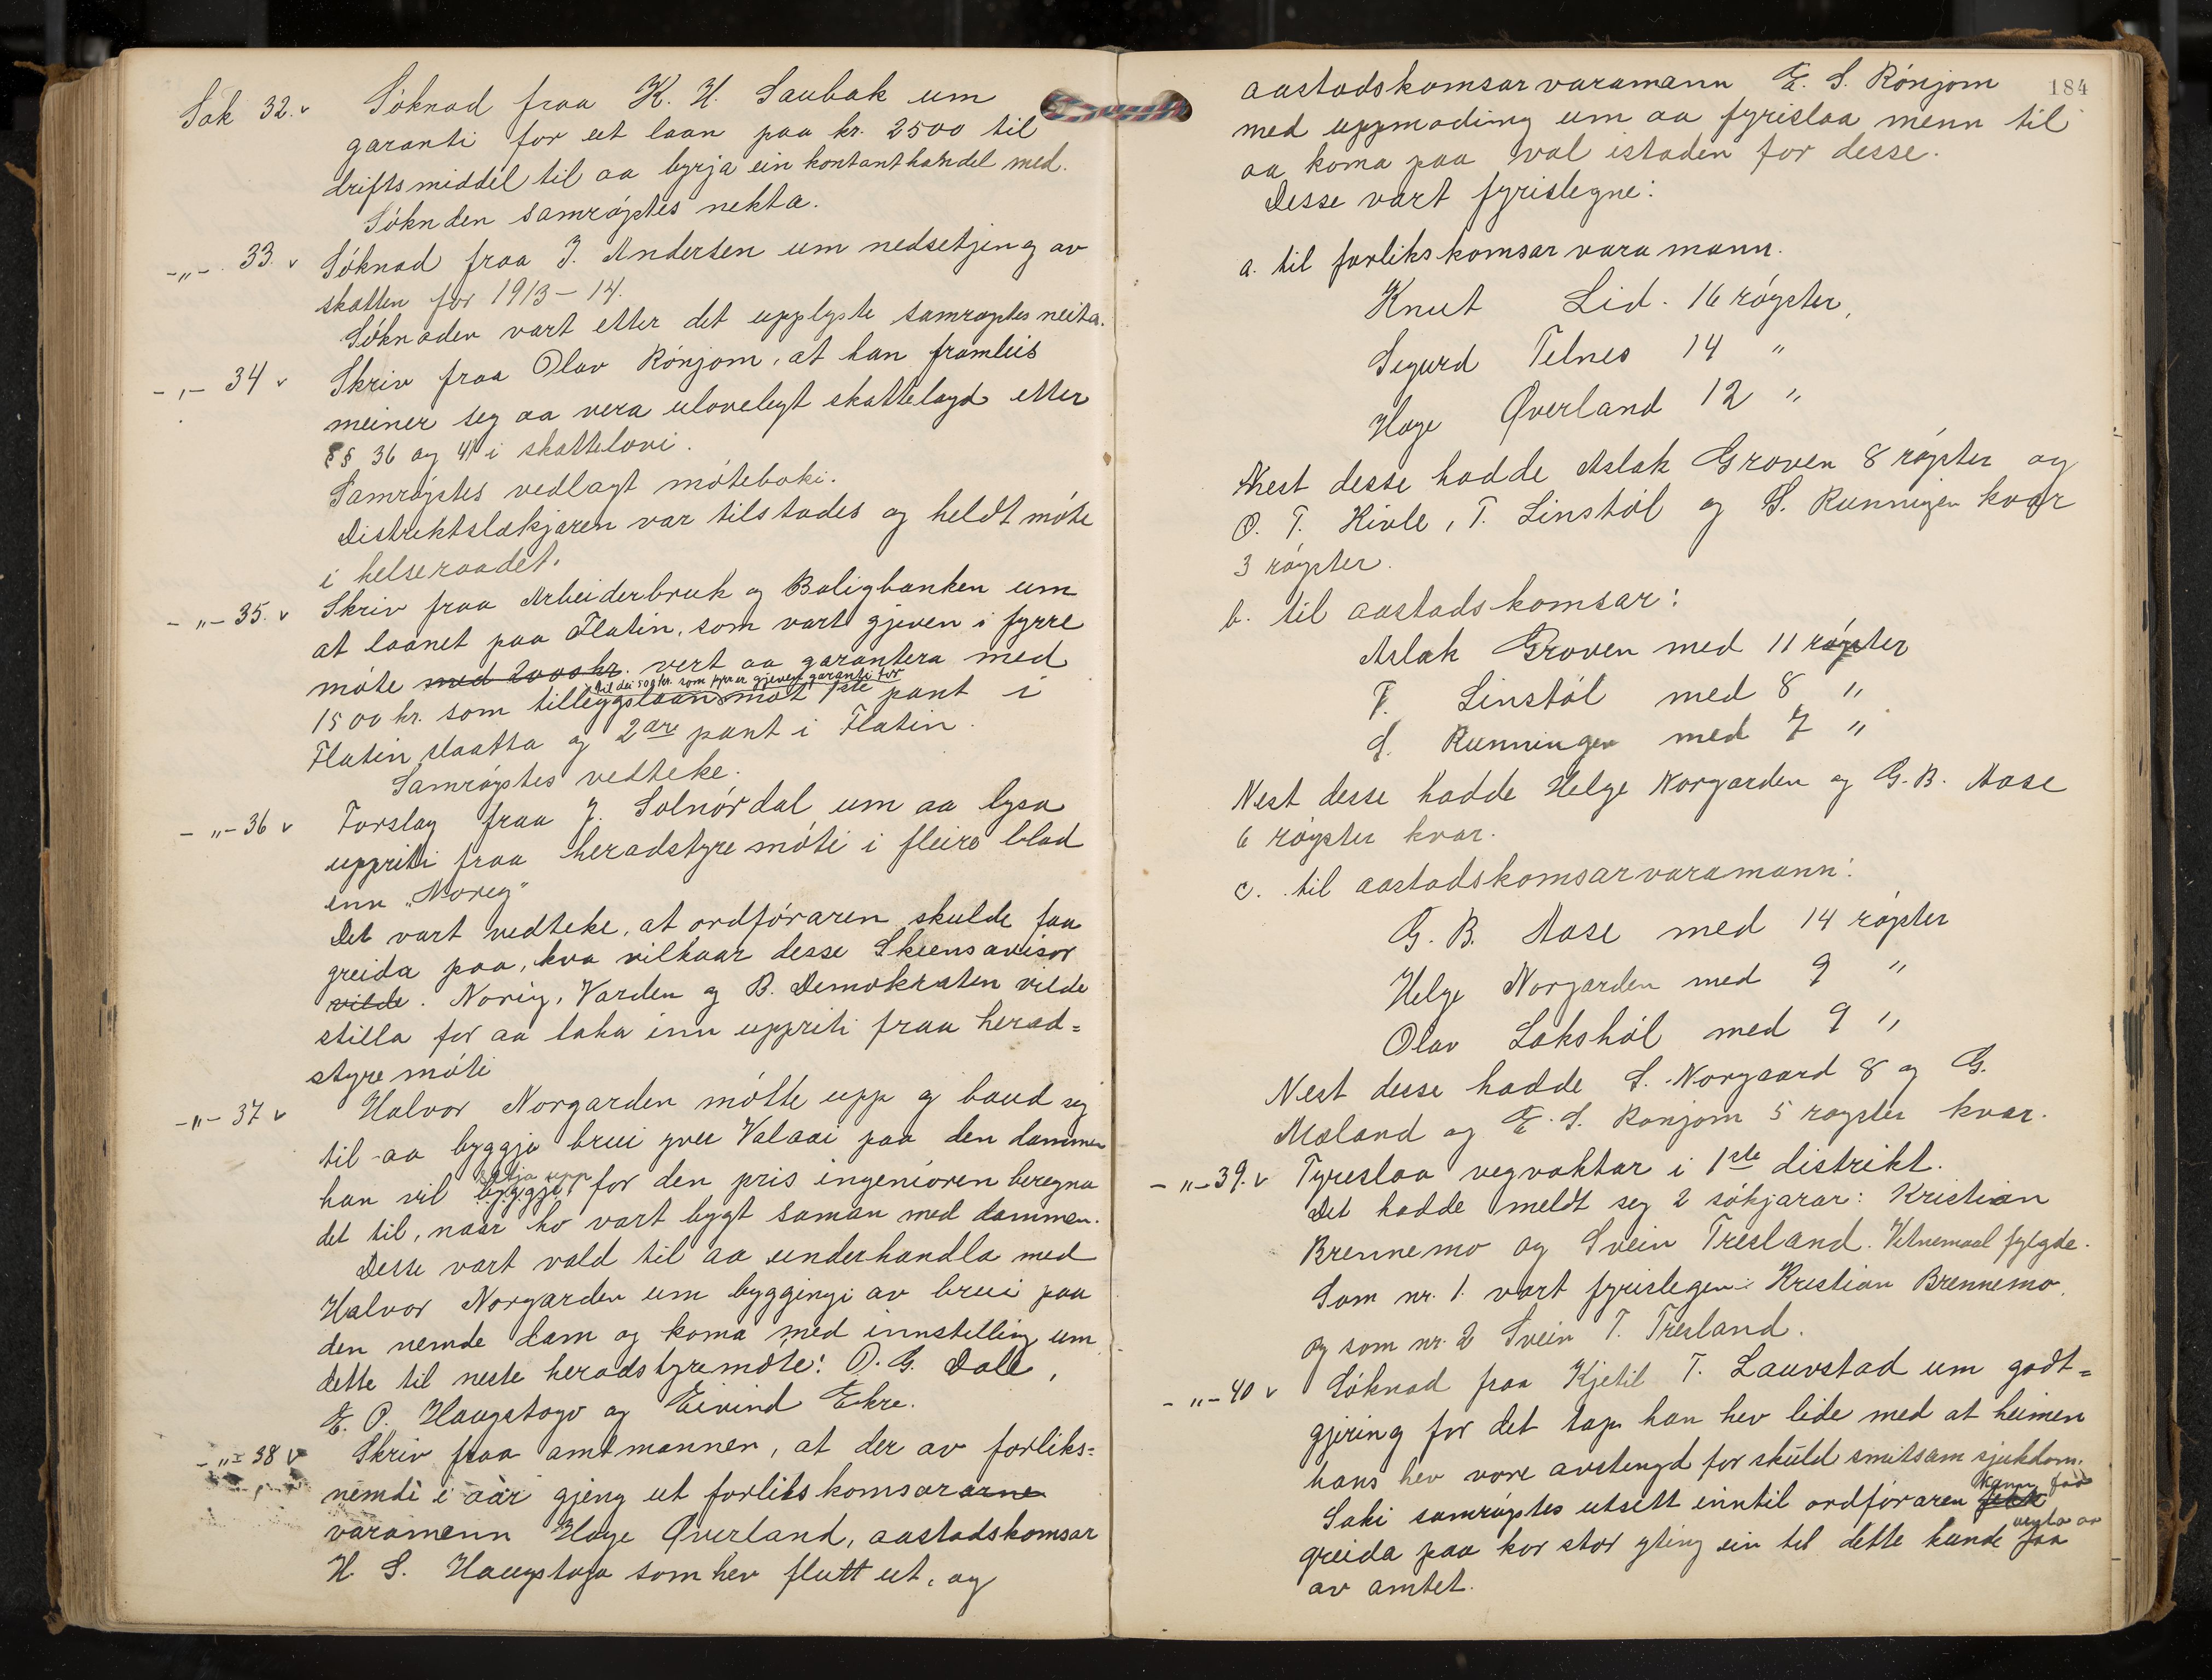 Sak 32. v Söknad fraa K. H. Saubak um
garanti for eit laan paa kr. 2500 til
driftsmiddel til aa byrja ein kontanthandel med.
Söknden samröystes nekta.
-„- 33. v Söknad fraa J. Andersen um nedsetjing av
skatten for 1913-14.
Söknaden vart etter det upplyste samröystes neita.
-„- 34 v Skriv fraa Olav Rönjom, at han framleis
meiner seg aa vera ulovelegt skattelagd etter
§§ 36 og 41 i skattelovi.
Samröystes vedlagt möteboki.
Distriktslækjaren var tilstades og heldt möte
i helseraadet.
-„- 35. v Skriv fraa Arbeiderbruk og Boligbanken um
at laanet paa Flatin, som vart gjeven i fyrre
möte med 2000 kr. vert aa garantera med
til dei 500 kr. som fyrr er gjeven garanti for
1500 kr. som tilleggslaan mot 1ste pant i
Flatin slaatta og 2are pant i Flatin.
Samröystes vedteke.
-„- 36 v Forslag fraa J. Solnördal um aa lysa
uppriti fraa heradstyremöti i fleire blad
enn „Noreg"
Det vart vedteke, at ordföraren skulde faa
greida paa, kva vilkaar desse Skiensavisor
vilde. Norig, Varden og B. Demokraten vilde
stilla for aa taka inn uppriti fraa herad=
styremöti
-„- 37 v Halvor Norgarden mötte upp og baud seg
til aa byggja brui yver Valaai paa den dammen
setja upp
han vil byggje for den pris ingeniören beregna
det til, naar ho vart bygt saman med dammen.
Desse vart vald til aa underhandla med
Halvor Norgarden um byggingi av brui paa
den nemde dam og koma med innstelling um
dette til neste heradstyremöte: O. G. Dale,
E. P. Haugstogo og Eivind Ekre.
-„- 38 v Skriv fraa amtmannen, at der av forliks=
nemdi i aar gjeng ut forlikskomsararne
varamenn Hage Øverland, aastadskomsar
H. S. Haugstoga som hev flutt ut, og
184
aastadskomsarvaramann E. S. Rönjom
med uppmoding um aa fyrislaa menn til
aa koma paa val istaden for desse.
Desse vart fyrislegne:
a. til forlikskomsarvaramann.
Knut Lid. 16 röyster,
Segurd Telnes 14 „
Hage Øverland 12 „
Næst desse hadde Aslak Groven 8 röyster og
O. T. Kivle, T. Linstöl og S. Runningen kvar
3 röyster.
b. til aastadskomsar:
Aslak Groven med 11 röyster
T. Linstöl med 8 „
S. Runningen med 7 „
Nest desse hadde Helge Norgarden og G. B. Aase
6 röyster kvar.
c. til aastadskomsarvaramann:
G. B. Aase med 14 röyster
Helge Norgarden med 9 „
Olav Lakshöl med 9 „
Nest desse hadde S. Norgaard 8 og G.
Mæland og E. S. Rønjom 5 røyster kvar.
-„- 39. v Fyreslaa vegvaktar i 1ste distrikt.
Det hadde meldt seg 2 sökjarar: Kristian
Brennemo og Svein Tresland. Vitnemaal fylgde.
Som nr. 1. vart fyrislegen: Kristian Brennemo.
og som nr. 2 Svein T. Tresland.
-„- 40 v Söknad fraa Kjetil T. Lauvstad um godt=
gjering for det tap han hev lide med at heimen
hans hev vore avstengd for skuld smitsam sjukdom.
kann faa
Saki samröystes utsett inntil ordföraren fekk
greida paa kor stor yting ein til dette kunde faa
av amtet.